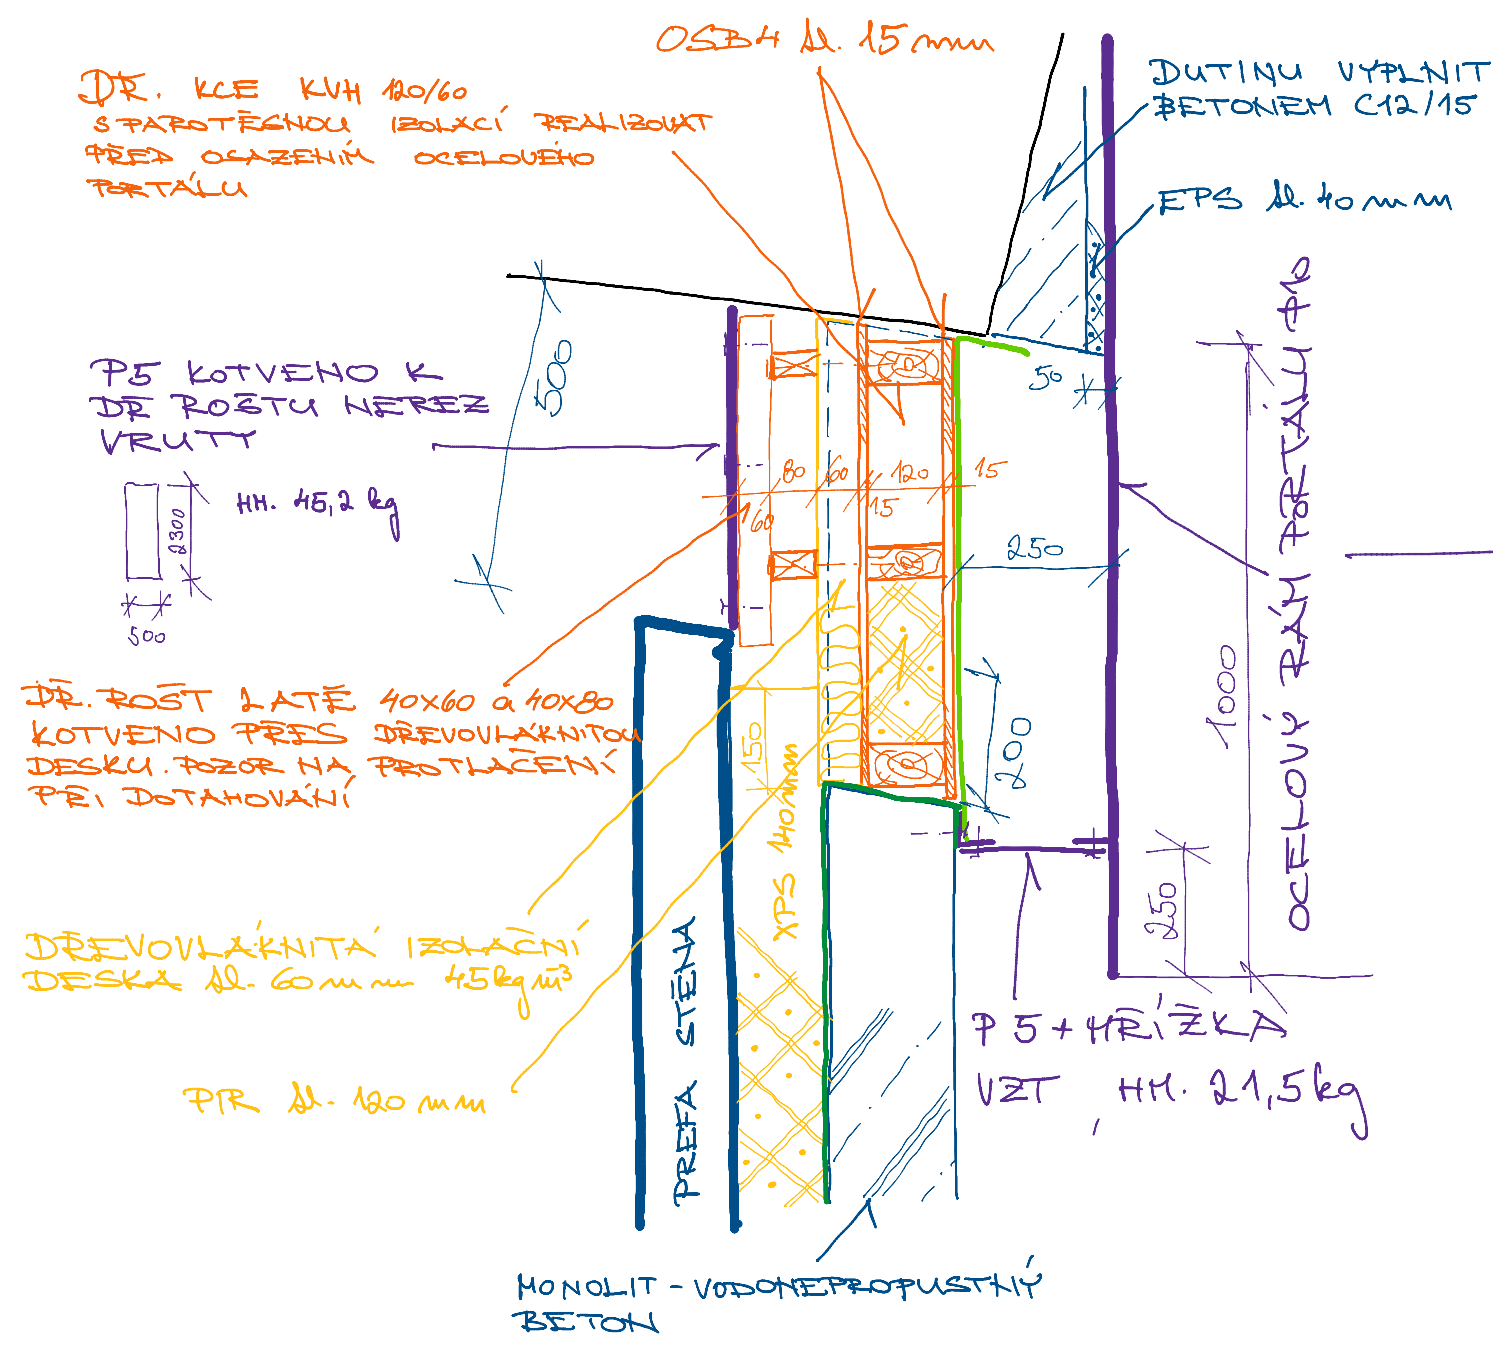 OSB4 tl. 15mm
DŘ. KCE KVH 120/60
S PAROTĚSNOU IZOLACÍ REALIZOVAT
PŘED OSAZENÍM OCELOVÉHO
PORTÁLU
DUTINU VYPLNIT
BETONEM C12/15
EPS tl. 40mm
500
50
P5 KOTVENO K
DŘ ROŠTU NEREZ
VRUTY
HM. 45,2 kg
2300
500
80
60
15
120
15
60
250
OCELOVÝ RÁM PORTÁLU P10
1000
DŘ. ROŠT LATĚ 40x60 a 40x80
KOTVENO PŘES DŘEVOVLÁKNITOU
DESKU. POZOR NA PROTLAČENÍ
PŘI DOTAHOVÁNÍ
150
200
XPS 140mm
250
DŘEVOVLÁKNITÁ IZOLAČNÍ
DESKA tl. 60mm 45kgm³
PREFA STĚNA
P5 + MŘÍŽKA
VZT, HM. 21,5kg
PIR tl. 120mm
MONOLIT - VODONEPROPUSTNÝ
BETON